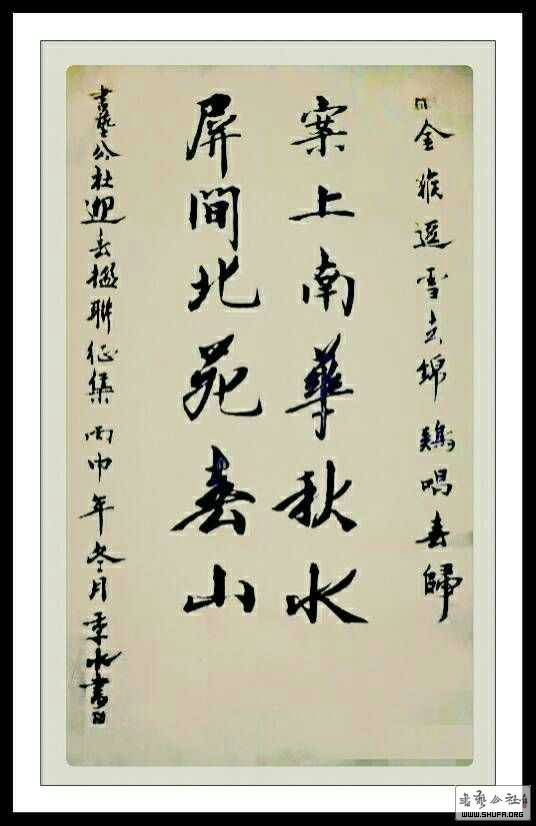 金猴逐雪去锦鸡唱春歸
案上南華秋水
屏間北苑春山
書藝公社迎春楹聯征集丙申年冬月季水書
书艺公社
WWW.SHUFA.ORG